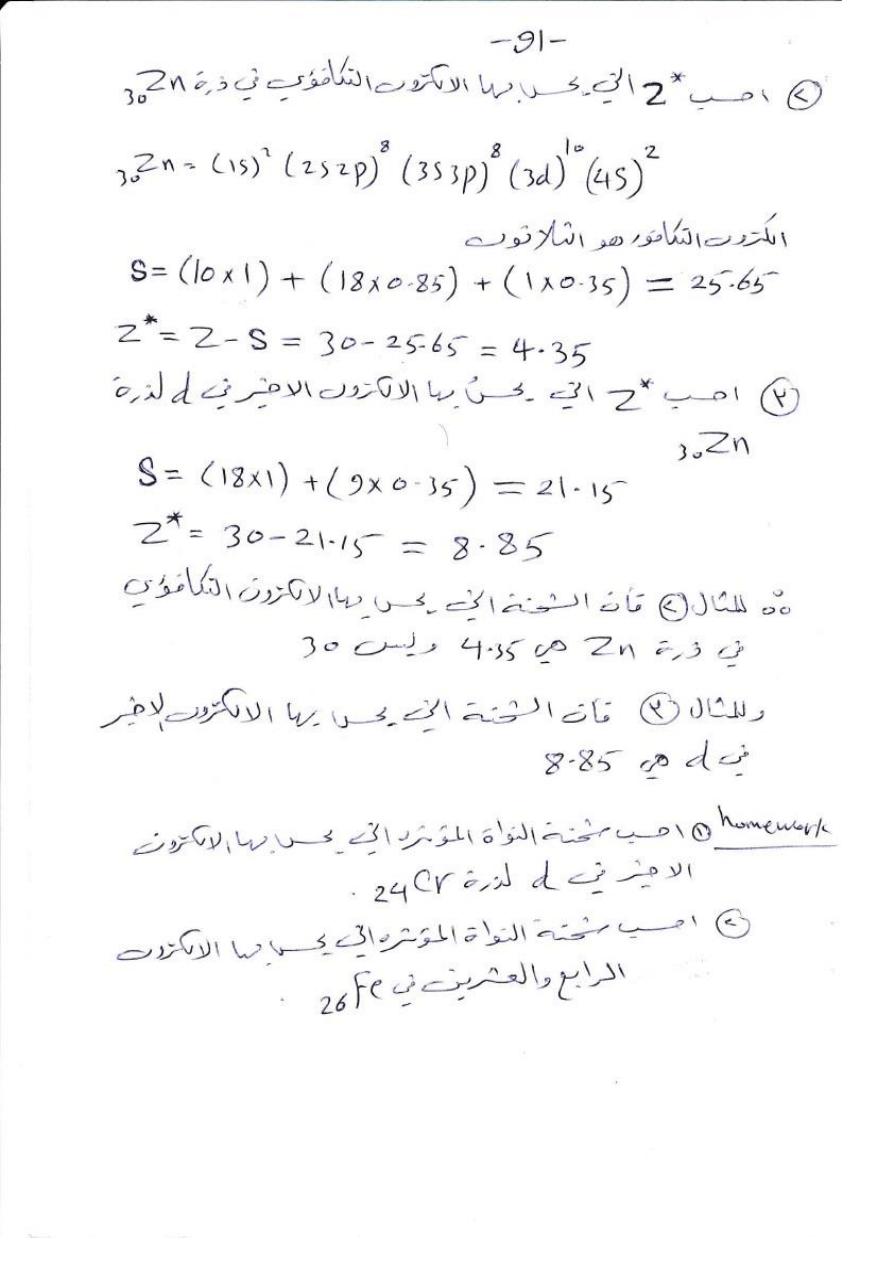 -91-
② احسب Z* التي يحس بها الالكترون التكافؤي في ذرة ₃₀Zn
₃₀Zn = (1S)² (2S2p)⁸ (3S3p)⁸ (3d)¹⁰ (4S)²
الكترون التكافؤ هو الثلاثون
S = (10x1) + (18x0.85) + (1x0.35) = 25.65
Z* = Z - S = 30 - 25.65 = 4.35
③ احسب Z* التي يحس بها الالكترون الاخير في d لذرة
₃₀Zn
S = (18x1) + (9x0.35) = 21.15
Z* = 30 - 21.15 = 8.85
∴ للمثال ② فأن الشحنة التي يحس بها الالكترون التكافؤي
في ذرة Zn هي 4.35 وليس 30
وللمثال ③ فأن الشحنة التي يحس بها الالكترون الاخير
في d هي 8.85
homework ① احسب شحنة النواة المؤثرة التي يحس بها الالكترون
الاخير في d لذرة ₂₄Cr .
② احسب شحنة النواة المؤثرة التي يحس بها الالكترون
الرابع والعشرين في ₂₆Fe .